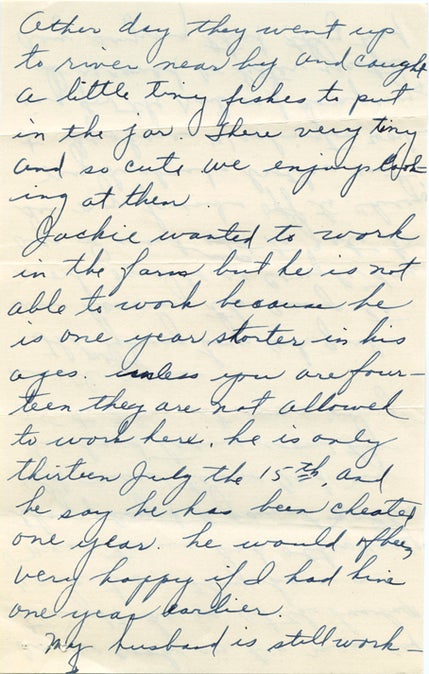 Other day they went up
to river near by and caught
a little tiny fishes to put
in the jar. There very tiny
and so cute we enjoyes look-
ing at them.
Jackie wanted to work
in the farm but he is not
able to work because he
is one year shorter in his
ages. unless you are four-
teen they are not allowed
to work here. he is only
thirteen July the 15th, and
he say he has been cheated
one year. he would of been
very happy if I had him
one year earlier.
My husband is still work-